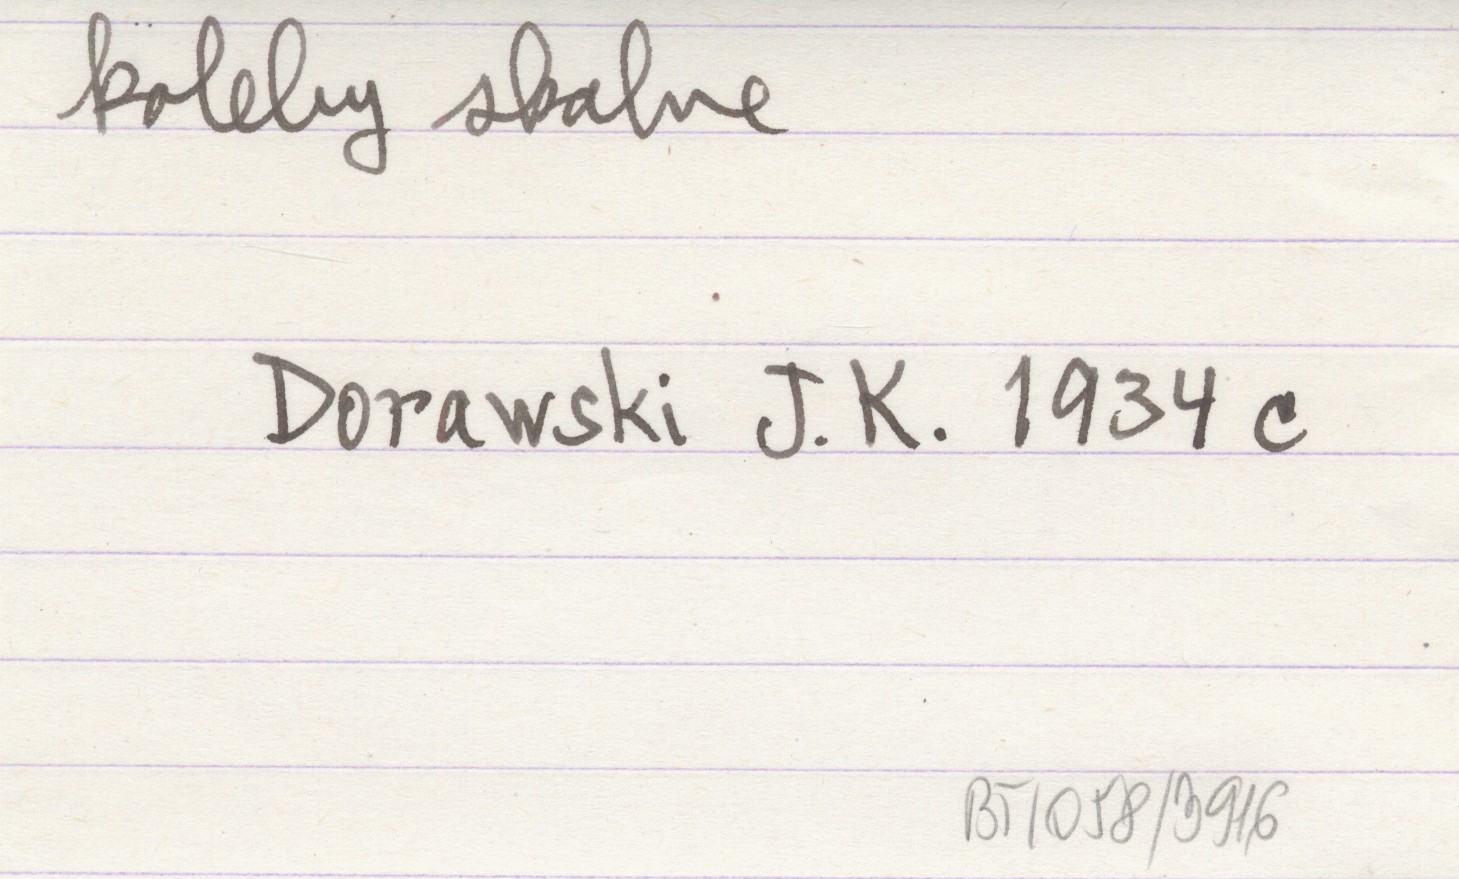 koleby skalne
Dorawski J.K. 1934 c
BT/058/3916